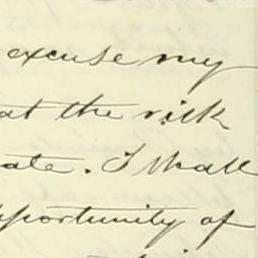 excuse my
at the risk
ate. I shall
pportunity of